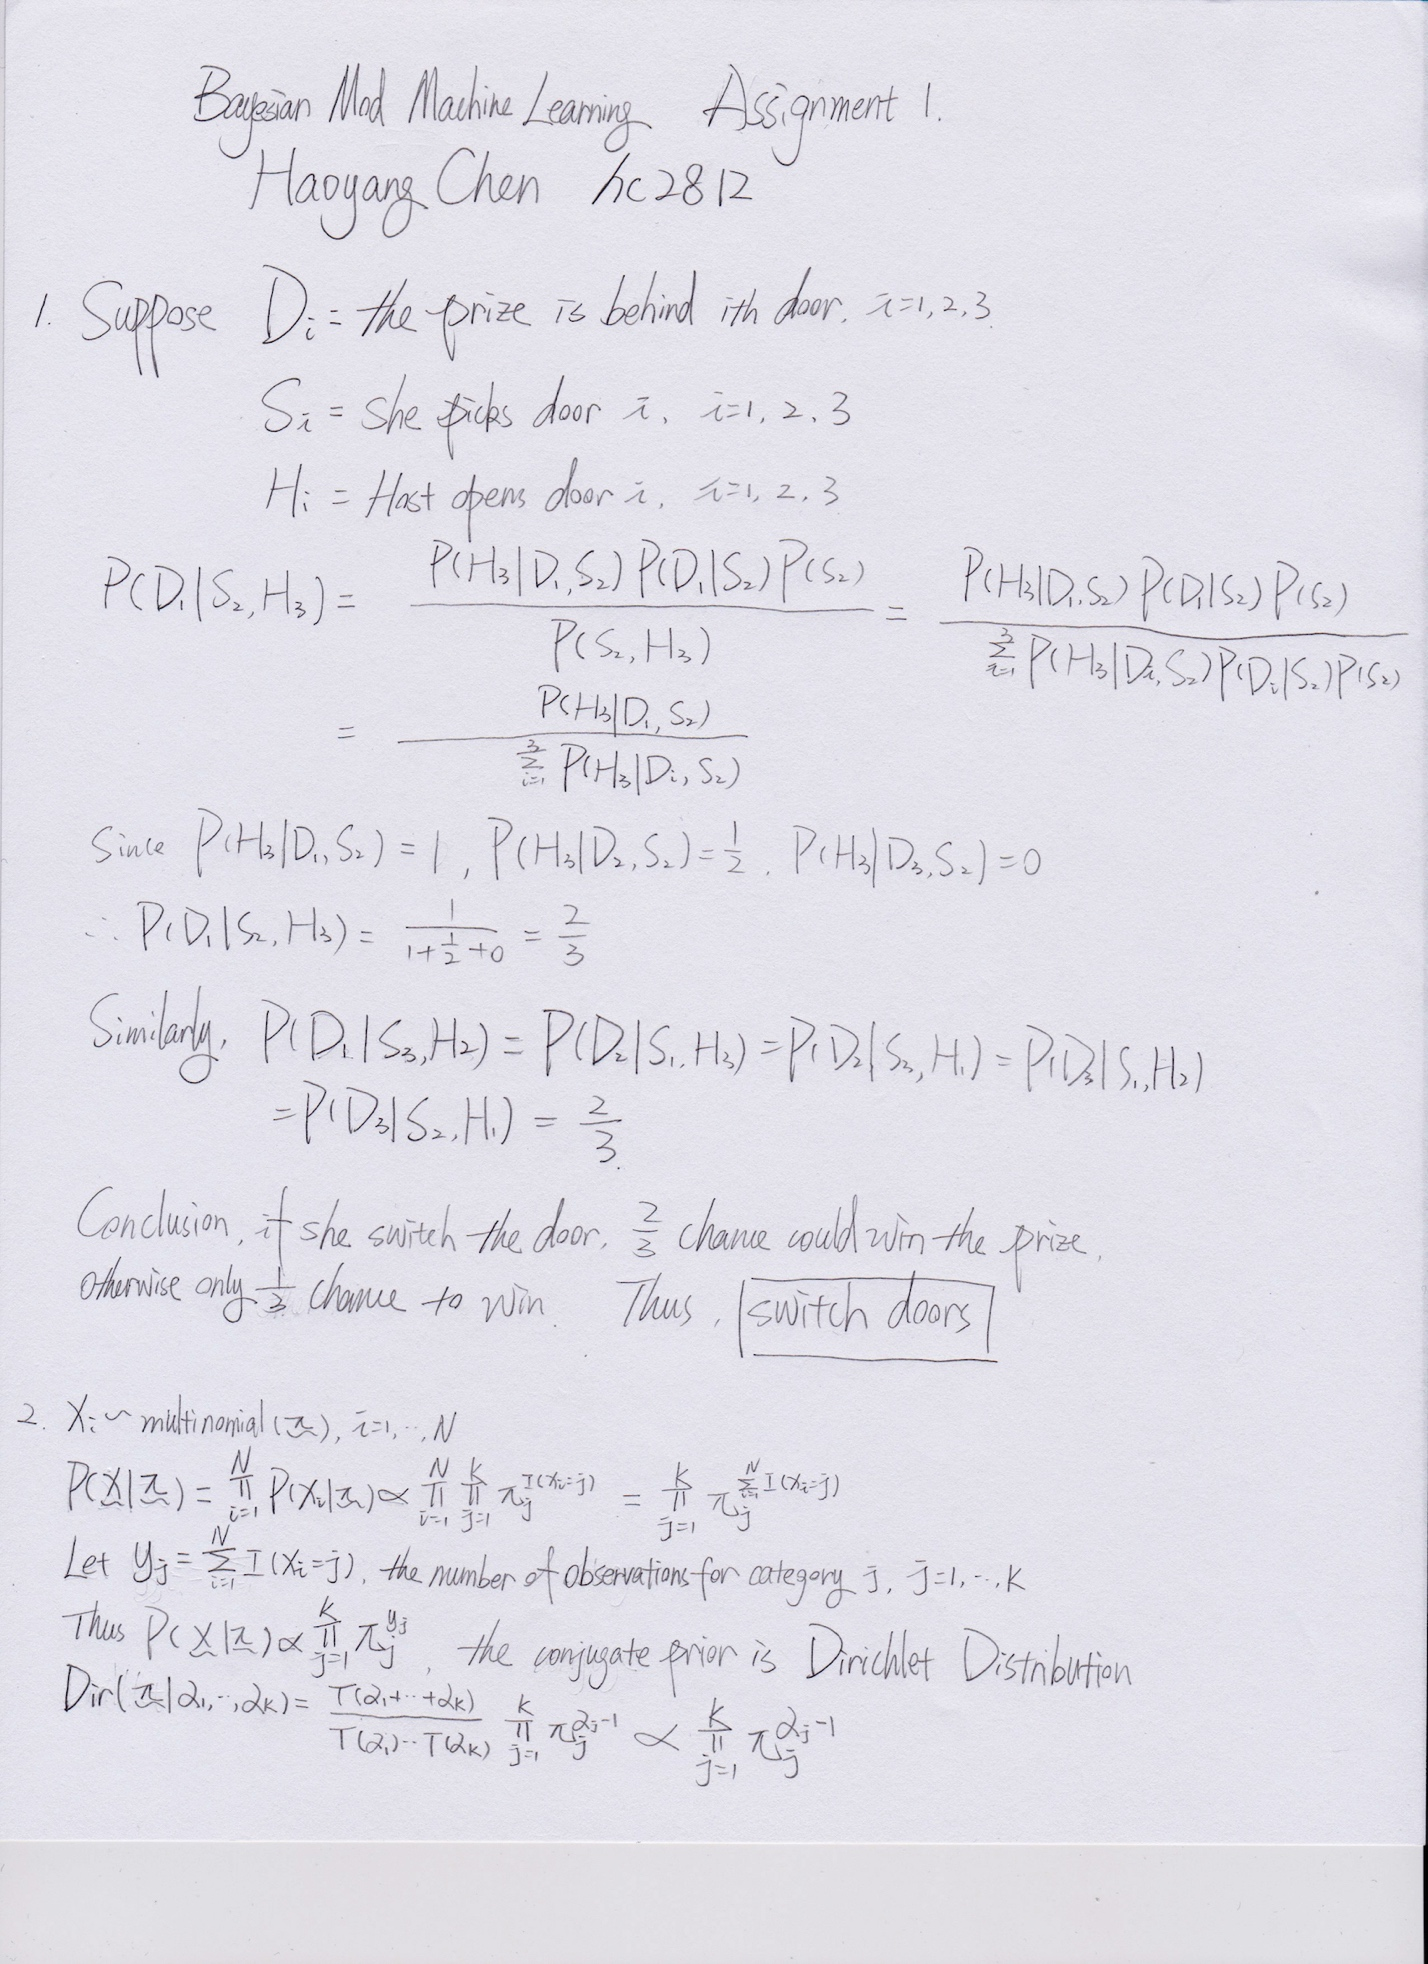 Bayesian Mod Machine Learning Assignment 1.
Haoyang Chen hc2812
1. Suppose Dᵢ = the prize is behind ith door. i=1,2,3.
Sᵢ = she picks door i, i=1,2,3
Hᵢ = Host opens door i, i=1,2,3
P(D₁|S₂,H₃) = P(H₃|D₁,S₂)P(D₁|S₂)P(S₂) / P(S₂,H₃) = P(H₃|D₁,S₂)P(D₁|S₂)P(S₂) / Σᵢ₌₁³ P(H₃|Dᵢ,S₂)P(Dᵢ|S₂)P(S₂)
= P(H₃|D₁,S₂) / Σᵢ₌₁³ P(H₃|Dᵢ,S₂)
Since P(H₃|D₁,S₂)=1, P(H₃|D₂,S₂)=1/2, P(H₃|D₃,S₂)=0
∴ P(D₁|S₂,H₃) = 1/(1+1/2+0) = 2/3
Similarly, P(D₁|S₃,H₂) = P(D₂|S₁,H₃) = P(D₂|S₃,H₁) = P(D₃|S₁,H₂)
= P(D₃|S₂,H₁) = 2/3.
Conclusion, if she switch the door, 2/3 chance could win the prize,
otherwise only 1/3 chance to win. Thus, switch doors
2. Xᵢ ~ multinomial(π), i=1,..,N
P(X|π) = ∏ᵢ₌₁ᴺ P(Xᵢ|π) ∝ ∏ᵢ₌₁ᴺ ∏ⱼ₌₁ᴷ πⱼ^{I(Xᵢ=j)} = ∏ⱼ₌₁ᴷ πⱼ^{Σᵢ₌₁ᴺ I(Xᵢ=j)}
Let yⱼ = Σᵢ₌₁ᴺ I(Xᵢ=j), the number of observations for category j, j=1,..,K
Thus P(X|π) ∝ ∏ⱼ₌₁ᴷ πⱼ^{yⱼ}, the conjugate prior is Dirichlet Distribution
Dir(π|α₁,..,αK) = Γ(α₁+..+αK) / Γ(α₁)..Γ(αK) ∏ⱼ₌₁ᴷ πⱼ^{αⱼ-1} ∝ ∏ⱼ₌₁ᴷ πⱼ^{αⱼ-1}